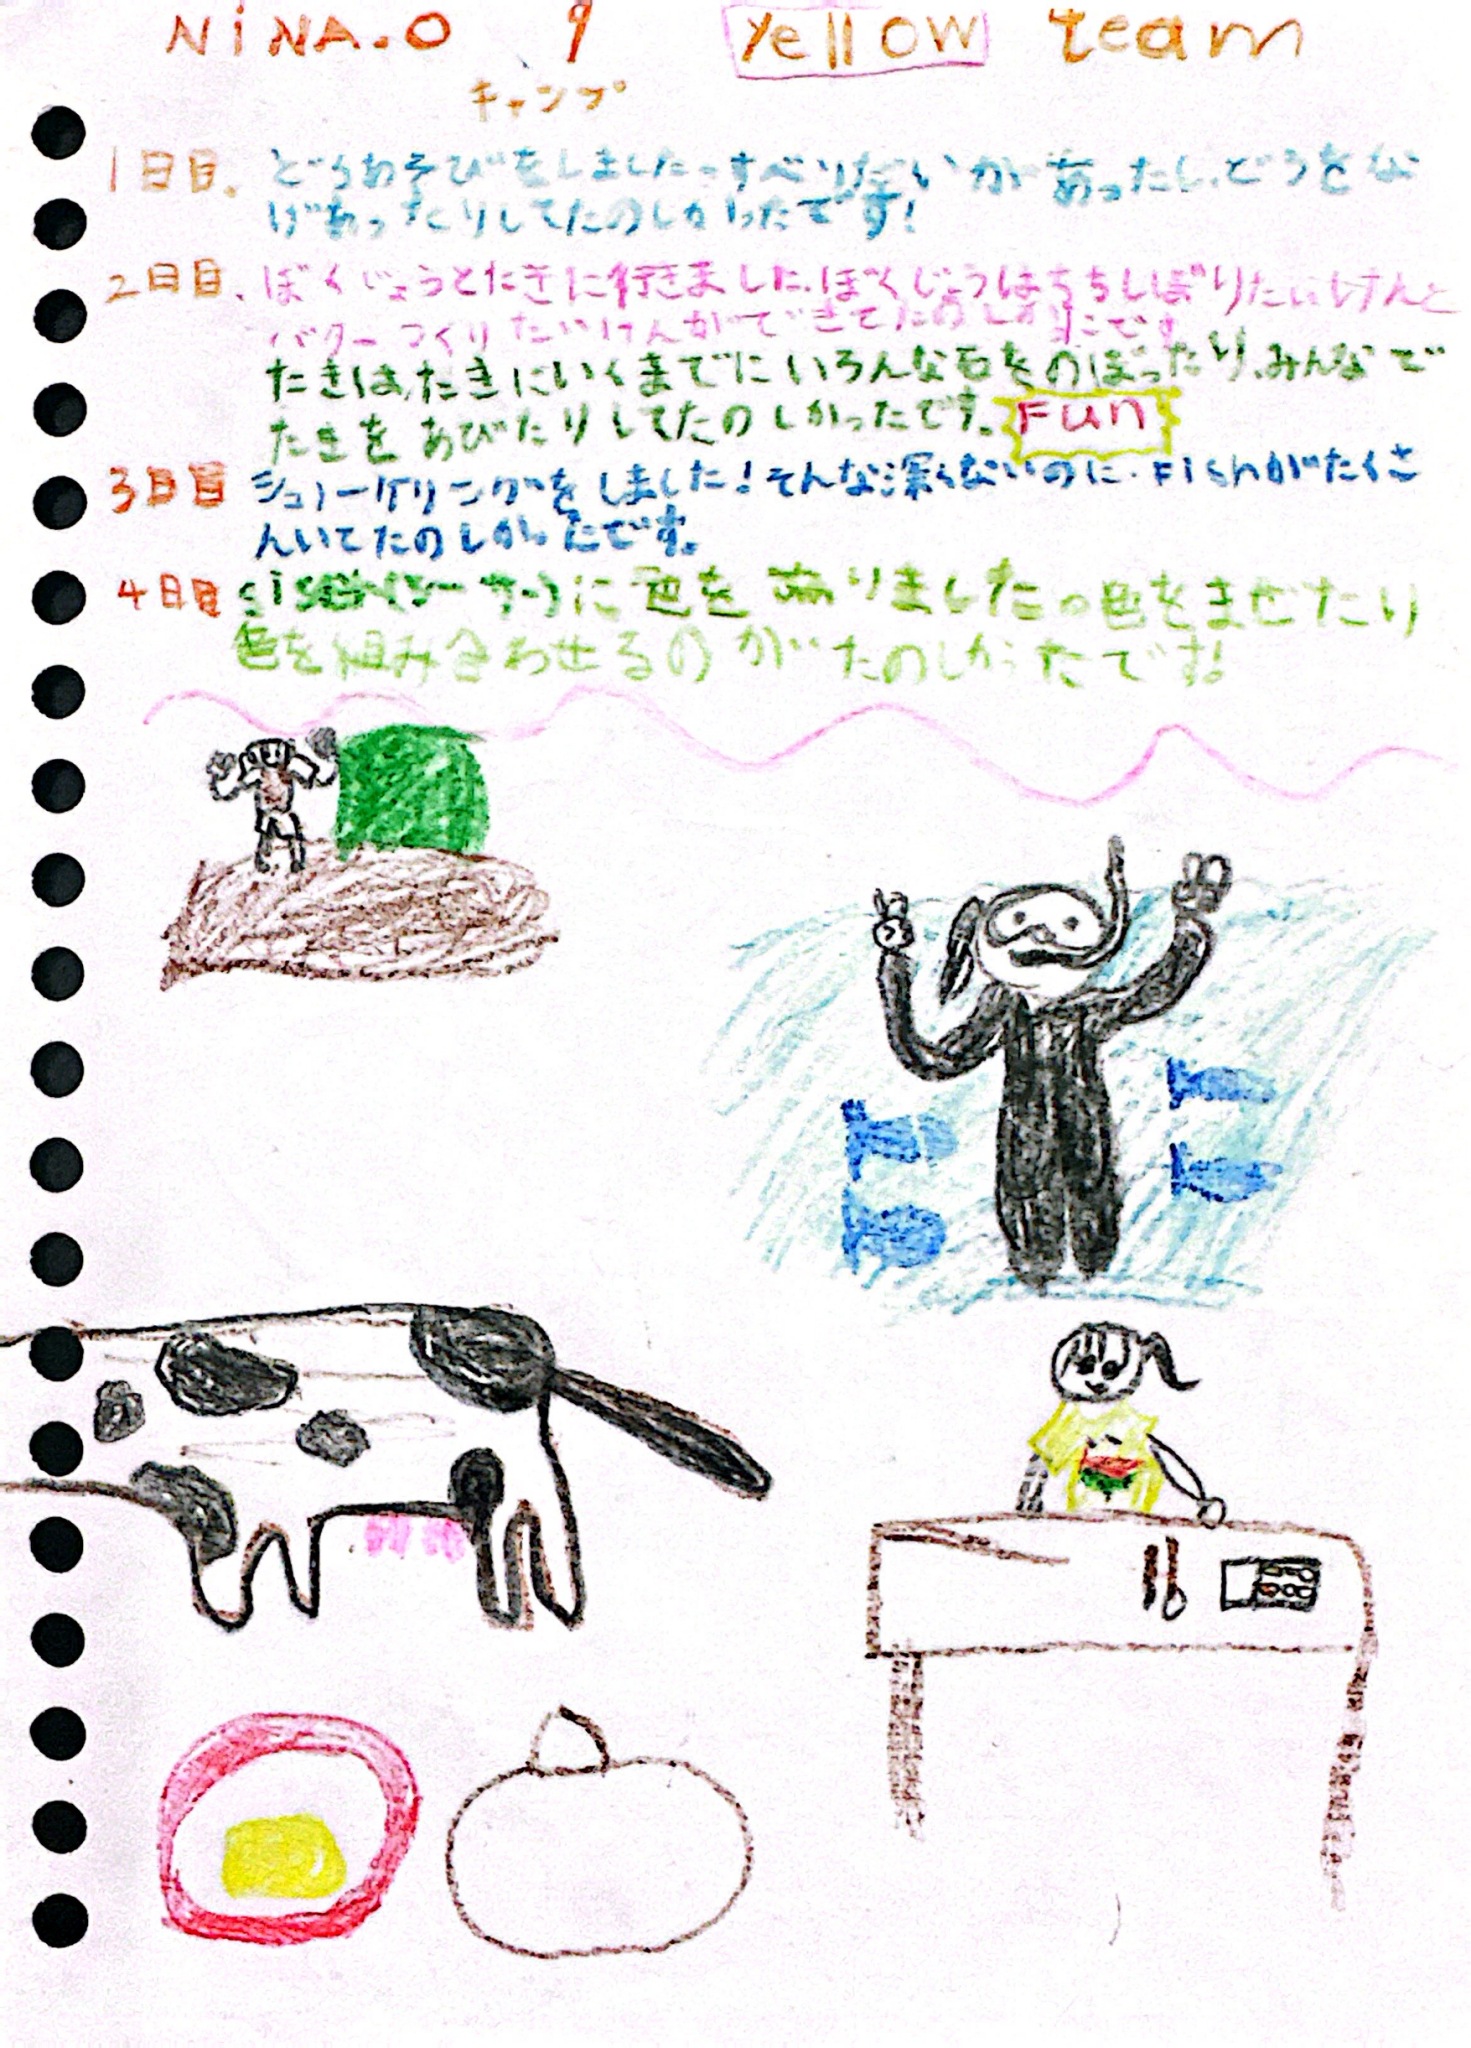 NiNA.O 9 Yellow team
キャンプ
1日目、どろあそびをしました。すべりだいがあったし、どろをな
げあったりしてたのしかったです!
2日目、ぼくじょうとたきに行きました、ぼくじょうはちちしぼりたいけんと
バターつくりたいけんができてたのしかったです
たきは、たきにいくまでにいろんな石をのぼったり、みんなで
たきをあびたりしてたのしかったです。Fun
3日目 シュノーケリングをしました!そんな深くないのに、Fishがたくさ
んいてたのしかったです。
4日目 (シーサー)に色を ぬりました。色をまぜたり
色を組み合わせるのがたのしかったです!